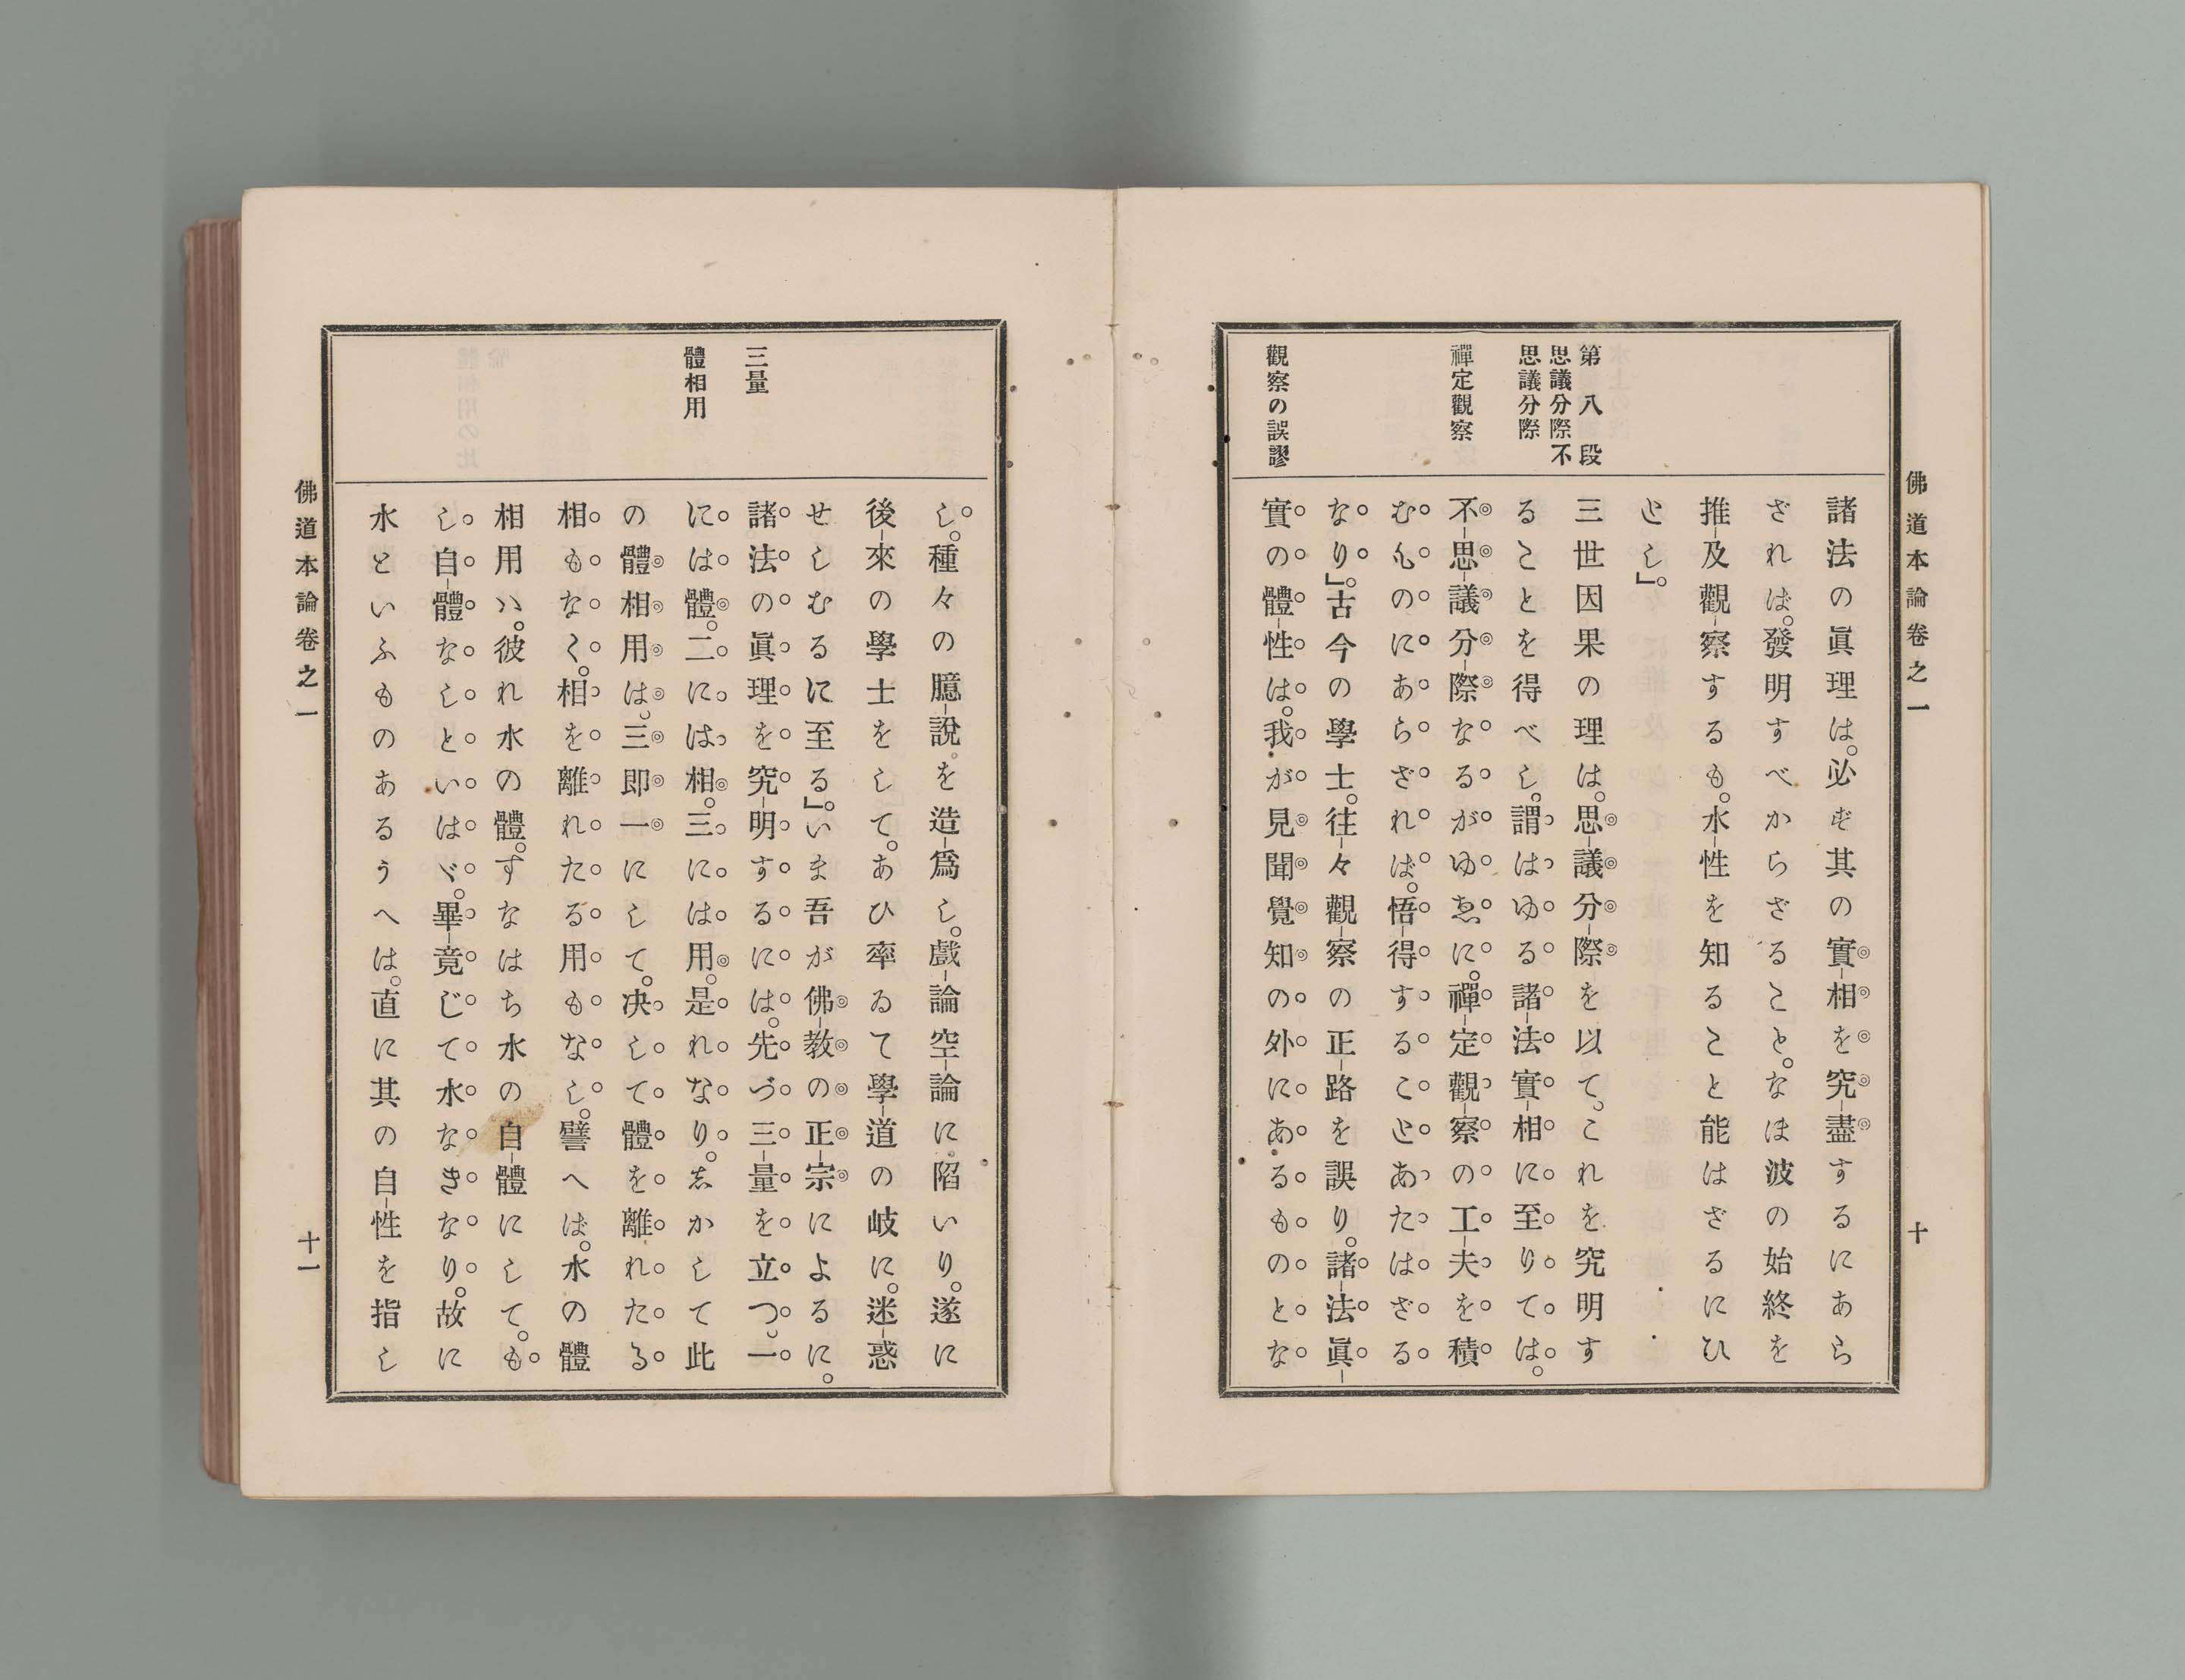 佛道本論卷之一
十
第八段
思議分際不
思議分際
禪定觀察
觀察の誤謬
諸法の眞理は。必ず其の實相を究盡するにあら
ざれば。發明すべからざること。なほ波の始終を
推及觀察するも。水性を知ること能はざるにひ
とし」。
三世因果の理は。思議分際を以て。これを究明す
ることを得べし。謂はゆる諸法實相に至りては。
不思議分際なるがゆゑに。禪定觀察の工夫を積
むものにあらざれば。悟得することあたはざる
なり」。古今の學士。往々觀察の正路を誤り。諸法眞
實の體性は。我が見聞覺知の外にあるものとな
三量
體相用
し。種々の臆說を造爲し。戲論空論に陷いり。遂に
後來の學士をして。あひ率ゐて學道の岐に。迷惑
せしむるに至る」。いま吾が佛教の正宗によるに。
諸法の眞理を究明するには。先づ三量を立つ。一
には體。二には相。三には用。是れなり。志かして此
の體相用は。三即一にして。决して體を離れたる
相もなく。相を離れたる用もなし。譬へば。水の體
相用ハ。彼れ水の體。すなはち水の自體にして。も
し自體なしといはゞ。畢竟じて水なきなり。故に
水といふものあるうへは。直に其の自性を指し
佛道本論卷之一
十一